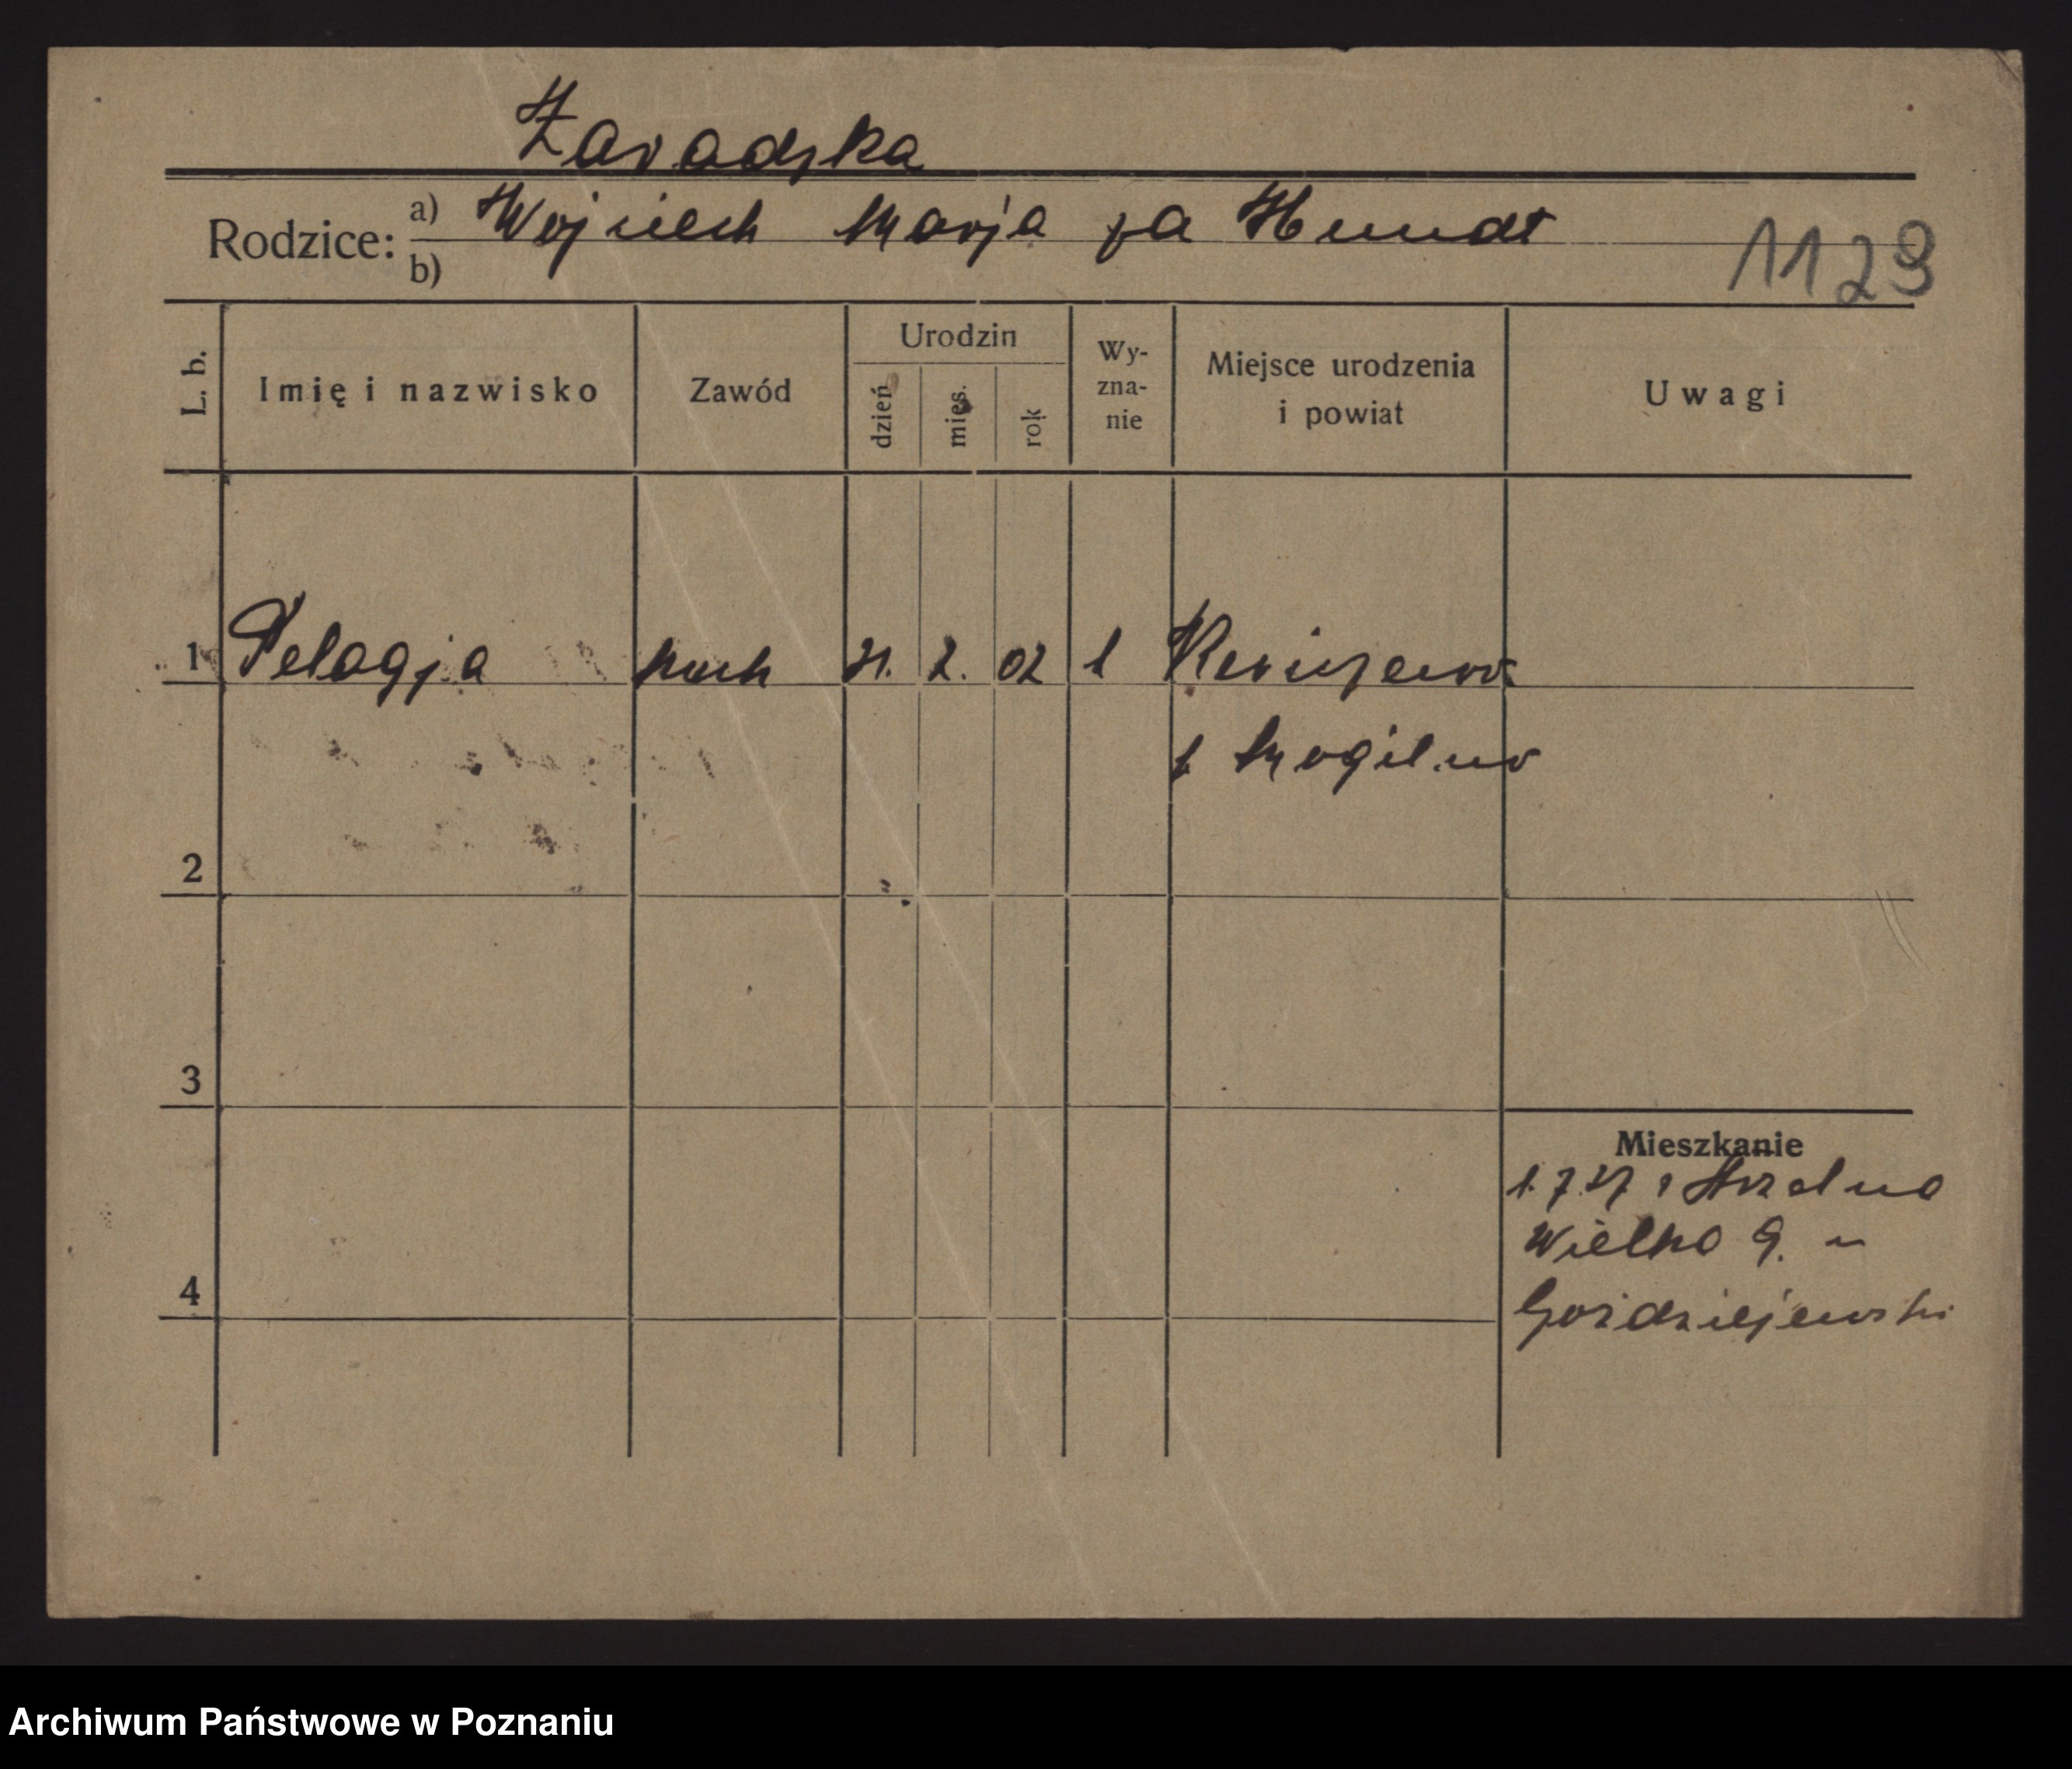 Zavadzka
Rodzice: a) Wojciech Marja za Hundt
b)
1129
L. b.
Imię i nazwisko
Zawód
Urodzin
dzień
mies.
rok
Wy-
zna-
nie
Miejsce urodzenia
i powiat
Uwagi
1 Pelagja 21. 2. 02
p Mogilno
2
3
4
Mieszkanie
1.7.27 z Strzelna
Wielka 9.
Goździejewski
Archiwum Państwowe w Poznaniu